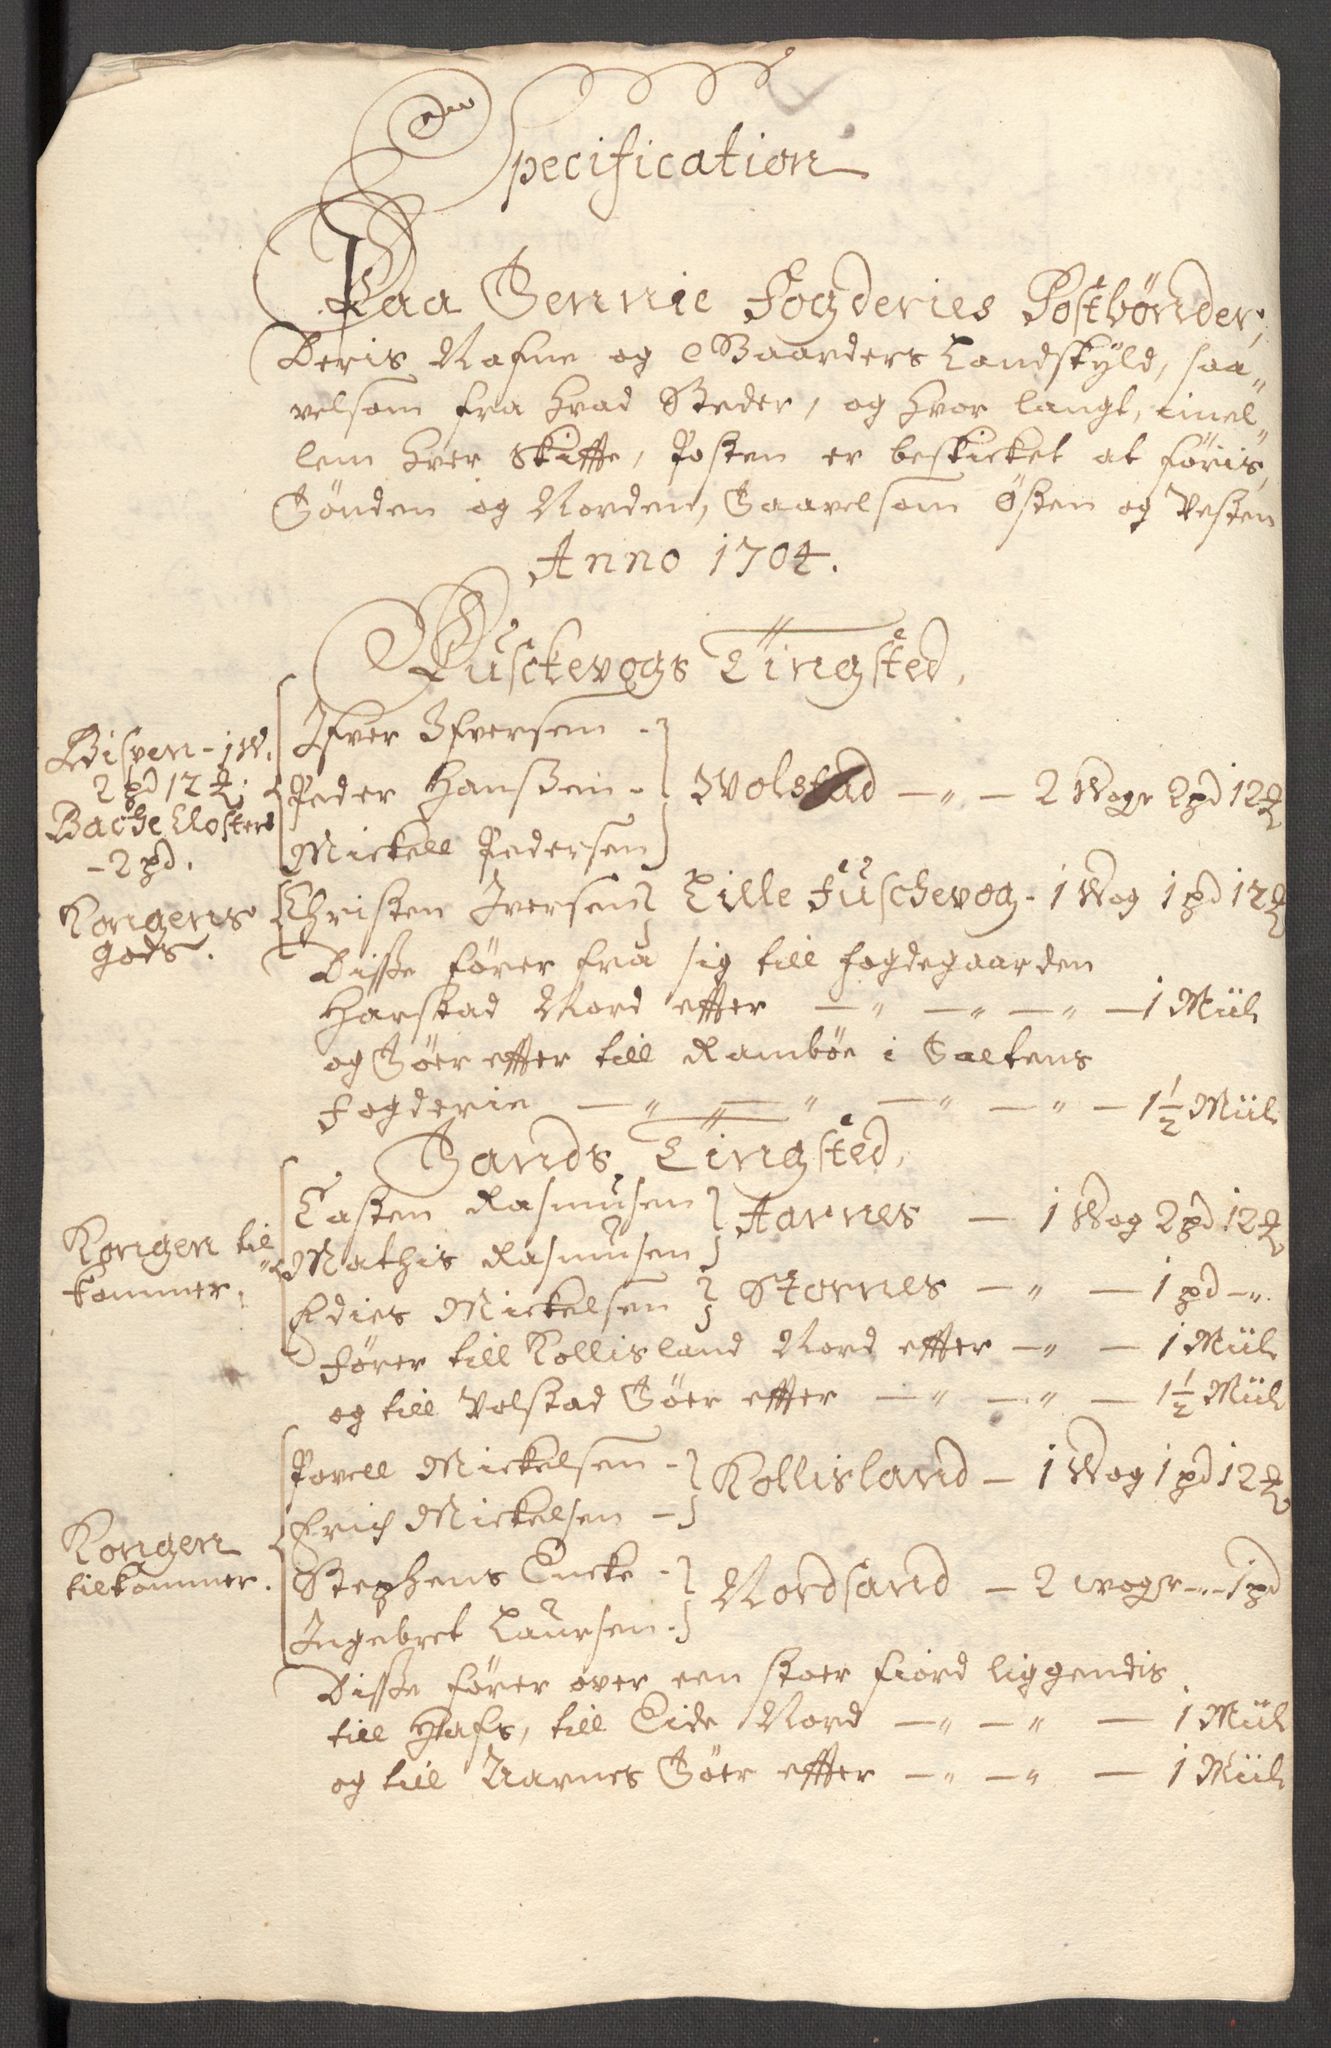 Specification
Paa Sennie Fogderies Postbönder,
Deris Nafne og Gaarders Landskyld, saa„
velsom fra hvad Steder, og hvor langt, imel„
lem hver Skiffte, Posten er beskicket at föris,
Sönden og Norden, Saavelsom Östen og Vesten
Anno 1704.
Fusckevogs Tingsted,
Bispen - 1 W.
2 pd 12 ℔.
Bache Closter
- 2 pd.
Ifver Ifversen -
Peder Hanßen -
Mickell Pedersen
Wolstad — „ — 2 Wogr 2 pd 12 ℔
Kongens
gods.
Christen Iversen Lille Fuschevog - 1 Wog 1 pd 12 ℔
Disse förer fra sig till fogdegaarden
Harstad Nord effter — „ — „ — „ — 1 Miil
og Söer effter till Ramböe i Saltens
Fogderie — „ — „ — „ — „ — 1½ Miil
Sands Tingsted,
Kongen til„
kommer.
Tasten Rasmusen
Mathis Rasmusen
Aarnes — 1 Wog 2 pd 12 ℔
Edies Mickelsen Stornes — „ — 1 pd - „.
förer till Kollisland Nord effter — „ — 1 Miil
og till Volstad Söer effter — „ — „ — 1½ Miil
Kongen
tilkommer.
Povell Mickelsen -
Erich Mickelsen -
Kollisland — 1 Wog 1 pd 12 ℔
Stephens Encke -
Ingebret Laursen -
Nordsand — 2 wogr - „ - 1 pd
Disse förer over een stoer fiord liggendis
till Hafs, till Eide Nord — „ — „ — 1 Miil
og till Aarnes Söer effter — „ — „ — 1 Miil